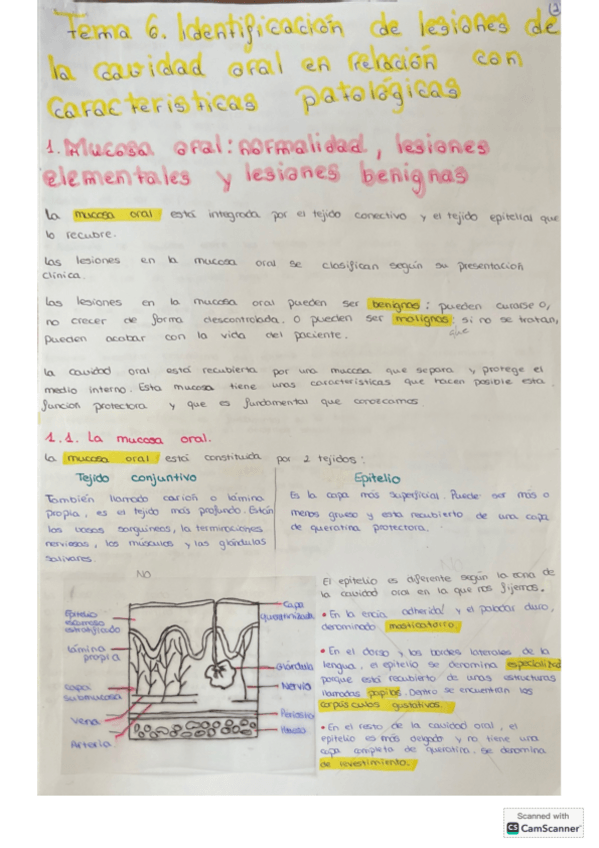 Tema 6. Identificación de lesiones de
la cavidad oral en relación con
características patológicas
1. Mucosa oral: normalidad, lesiones
elementales y lesiones benignas
La mucosa oral está integrada por el tejido conectivo y el tejido epitelial que
lo recubre.
Las lesiones en la mucosa oral se clasifican según su presentación
clínica.
Las lesiones en la mucosa oral pueden ser benignas: pueden curarse o,
no crecer de forma descontrolada. O pueden ser malignas: si no se tratan,
pueden acabar con la vida del paciente.
que
La cavidad oral está recubierta por una mucosa que separa y protege el
medio interno. Esta mucosa tiene unas características que hacen posible esta
función protectora y que es fundamental que conozcamos.
1.1. La mucosa oral.
La mucosa oral está constituida por 2 tejidos:
Tejido conjuntivo
También llamado corión o lámina
propia, es el tejido más profundo. Están
los vasos sanguíneos, la terminaciones
nerviosas, los músculos y las glándulas
salivares.
Epitelio
Es la capa más superficial. Puede ser más o
menos grueso y esta recubierto de una capa
de queratina protectora.
NO
Epitelio
escamoso
estratificado
lámina
propia
capa
submucosa
Vena
Arteria
Capa
queratinizada
Glándula
Nervio
Periostio
Hueso
El epitelio es diferente según la zona de
la cavidad oral en la que nos fijemos.
• En la encía adherida y el paladar duro,
denominado masticatorio.
• En el dorso y los bordes laterales de la
lengua, el epitelio se denomina especializado
porque está recubierto de unas estructuras
llamadas papilas. Dentro se encuentran los
corpúsculos gustativos.
• En el resto de la cavidad oral, el
epitelio es más delgado y no tiene una
capa completa de queratina. Se denomina
de revestimiento.
Scanned with
CS CamScanner